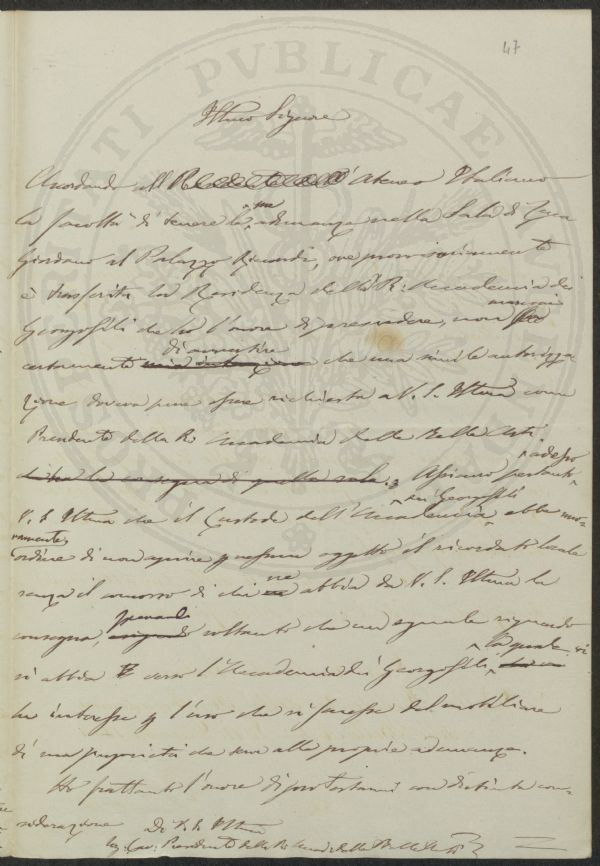 47
PROSPERITATI PVBLICAE
Illmo Signore
Accordando all' Ateneo Italiano
la facoltà di tenere le sue adunanze nella Sala di Luca
Giordano al Palazzo Riccardi, ove provvisoriamente
è trasferita la Residenza della R. Accademia dei
Georgofili che ho l'onore di presiedere, non
certamente di avvertire che una simile autorizza
zione doveva pure esser richiesta a V. S. Illma come
Presidente della R. Accademia delle Belle Arti.
adesso
pertanto
V. S. Illma che il Custode dell'Accademia dei Georgofili ebbe nuo-
vamente
ordine di non aprire p nessun oggetto il ricordato locale
senza il concorso di chi ne abbia da V. S. Illma la
consegna, sperando soltanto che un eguale riguardo
si abbia verso l'Accademia dei Georgofili la quale vi
ha interesse p l'uso che si facesse del mobiliare
di sua proprietà che serve alle proprie adunanze.
Ho frattanto l'onore di protestarmi con distinta con-
siderazione Di V. S. Illma
Sig. Cav. Presidente della R. Accad. delle Belle Arti